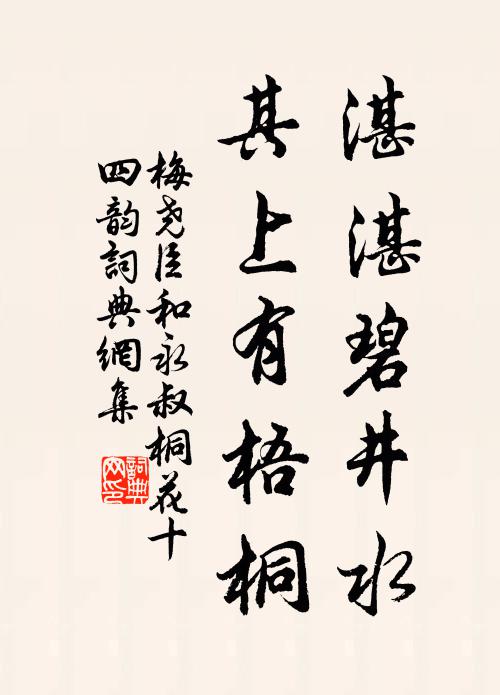 湛湛碧井水
其上有梧桐
梅尧臣和永叔桐花十
四韵詞典網集
詞典
网印